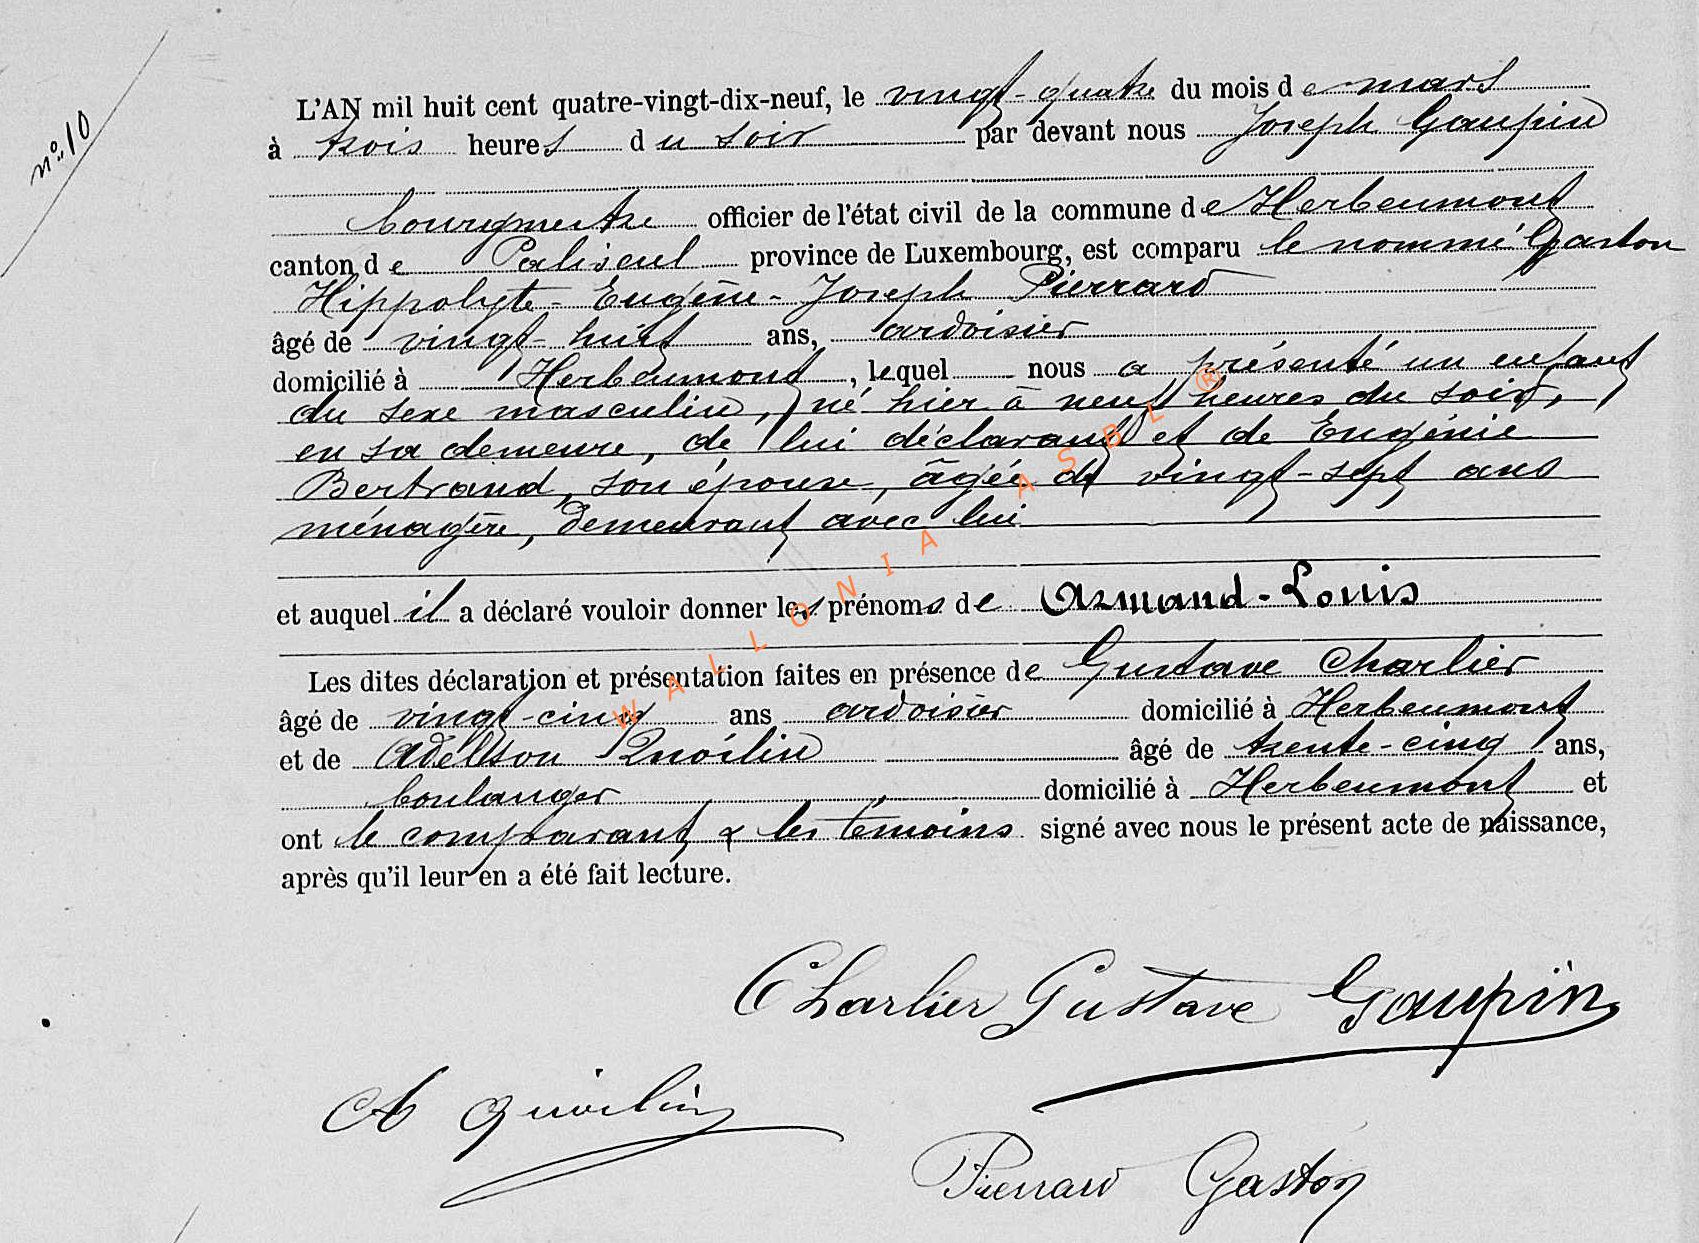 n° 10
L'AN mil huit cent quatre-vingt-dix-neuf, le vingt-quatre du mois de mars
à trois heures du soir par devant nous Joseph Gaupin
bourgmestre officier de l'état civil de la commune de Herbeumont
canton de Paliseul province de Luxembourg, est comparu le nommé Gaston
Hippolyte-Eugène-Joseph Pierrard
âgé de vingt-huit ans, ardoisier
domicilié à Herbeumont, lequel nous a présenté un enfant
du sexe masculin, né hier à neuf heures du soir,
en sa demeure, de lui déclarant et de Eugénie
Bertrand, son épouse, âgée de vingt-sept ans
ménagère, demeurant avec lui
et auquel il a déclaré vouloir donner les prénoms de Armand-Louis
Les dites déclaration et présentation faites en présence de Gustave Charlier
âgé de vingt-cinq ans ardoisier domicilié à Herbeumont
et de Adelson Quoilin âgé de trente-cinq ans,
boulanger domicilié à Herbeumont et
ont le comparant & les témoins signé avec nous le présent acte de naissance,
après qu'il leur en a été fait lecture.
Charlier Gustave Gaupin
A Quoilin
Pierrard Gaston
WALLONIA ASBL ®